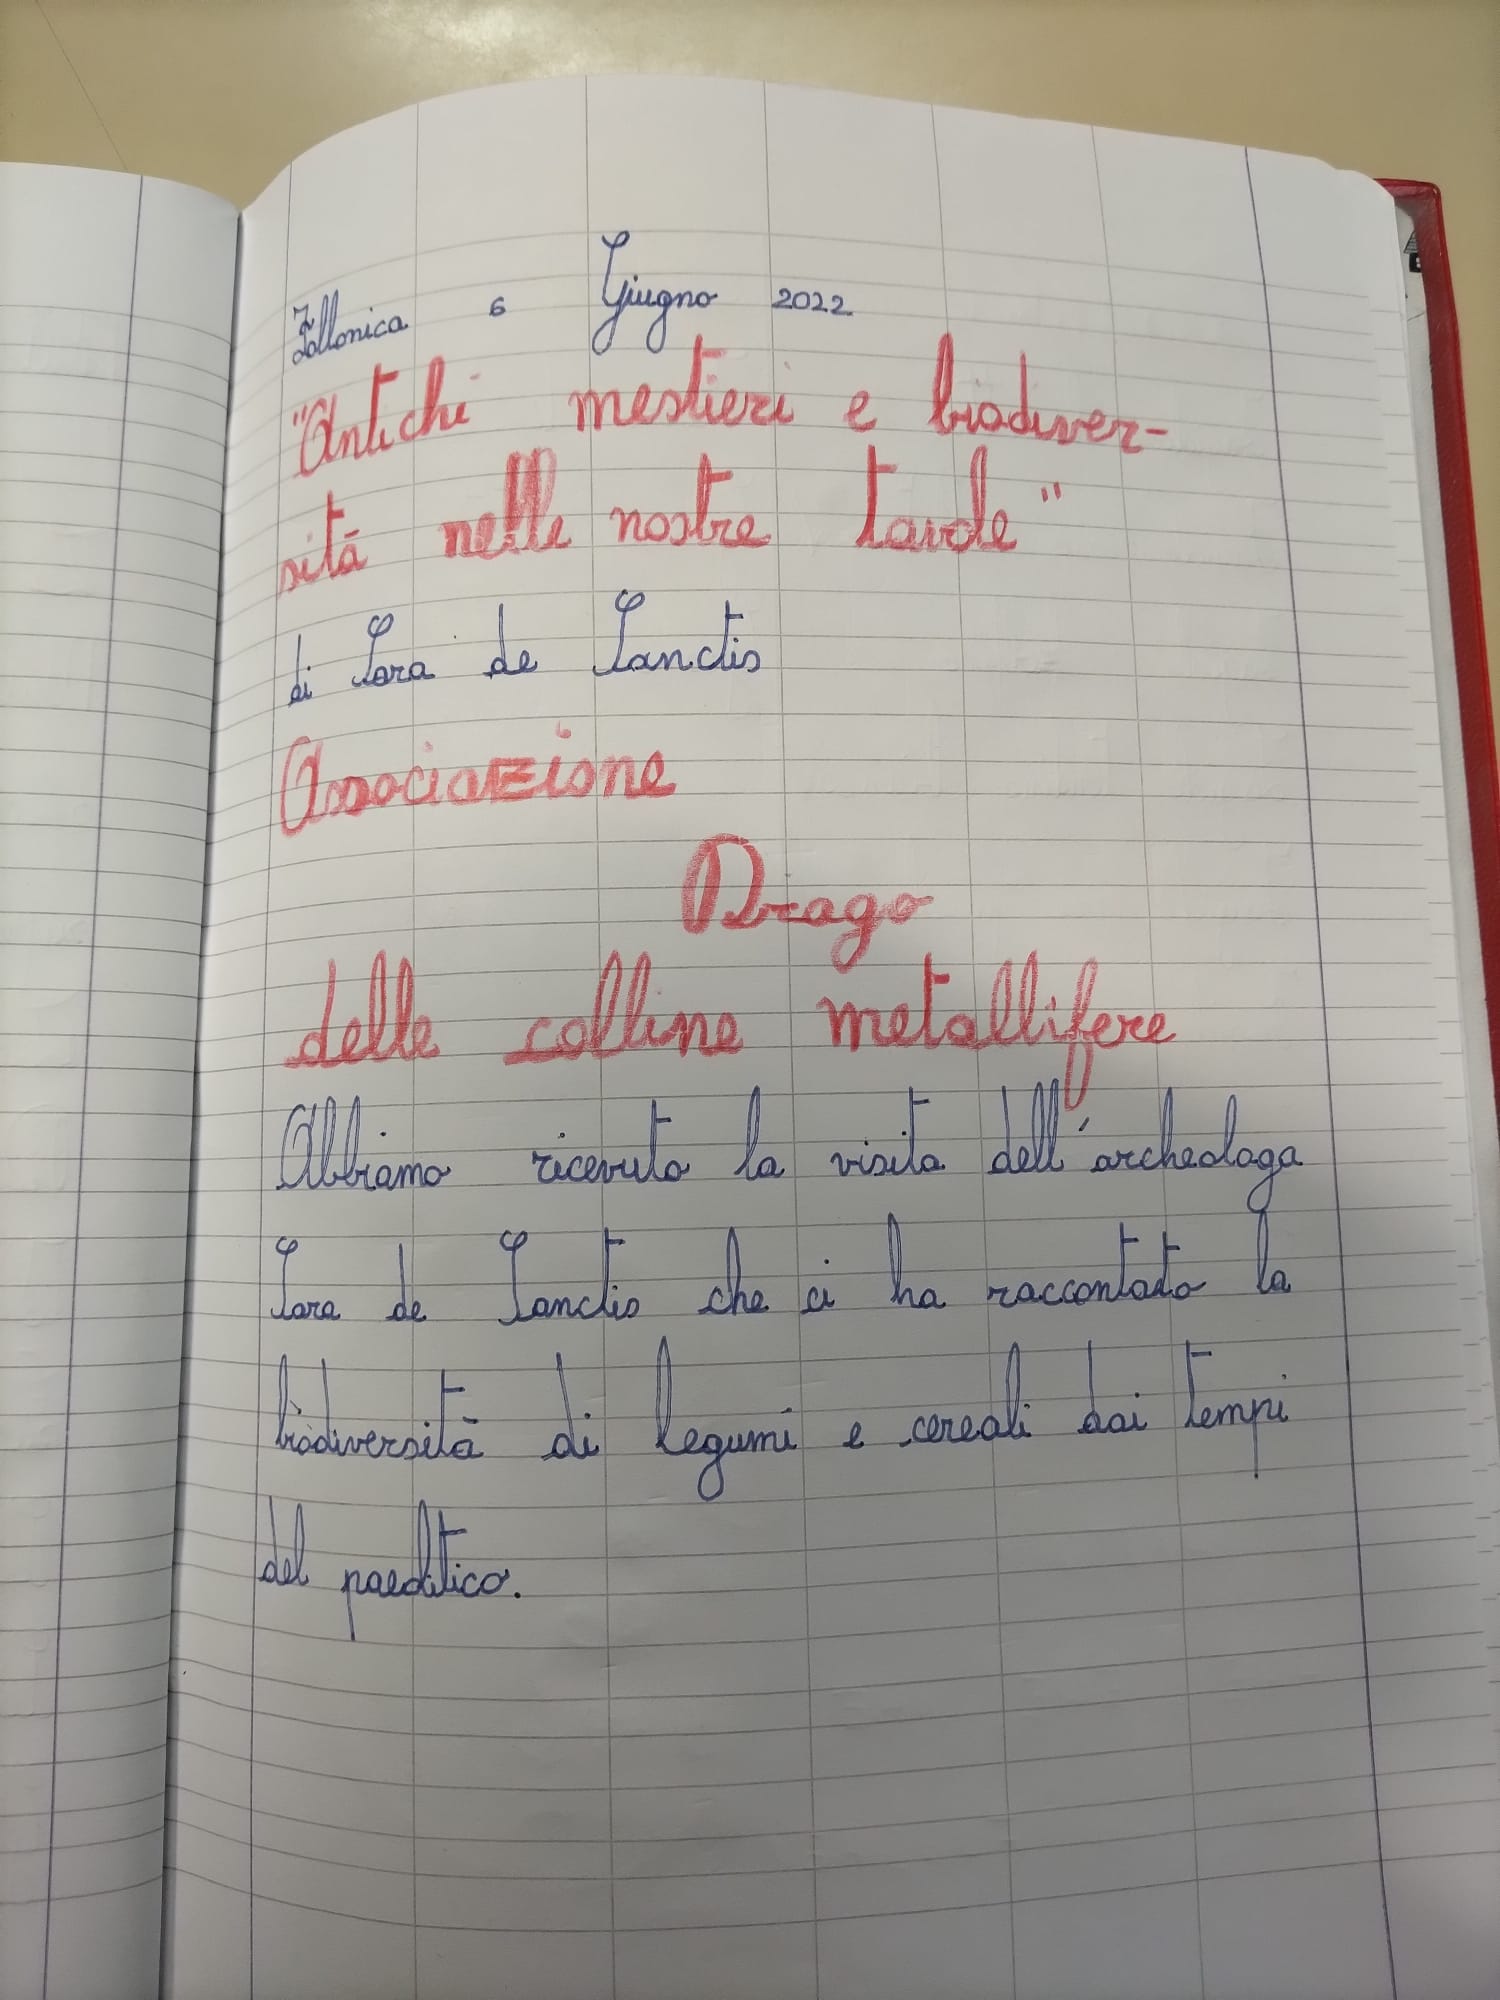 Follonica 6 Giugno 2022
"Antichi mestieri e biodiver-
sità nelle nostre tavole"
di Sara de Sanctis
Associazione
Drago
delle colline metallifere
Abbiamo ricevuto la visita dell'archeologa
Sara de Sanctis che ci ha raccontato la
biodiversità di legumi e cereali dai tempi
del paeolitico.